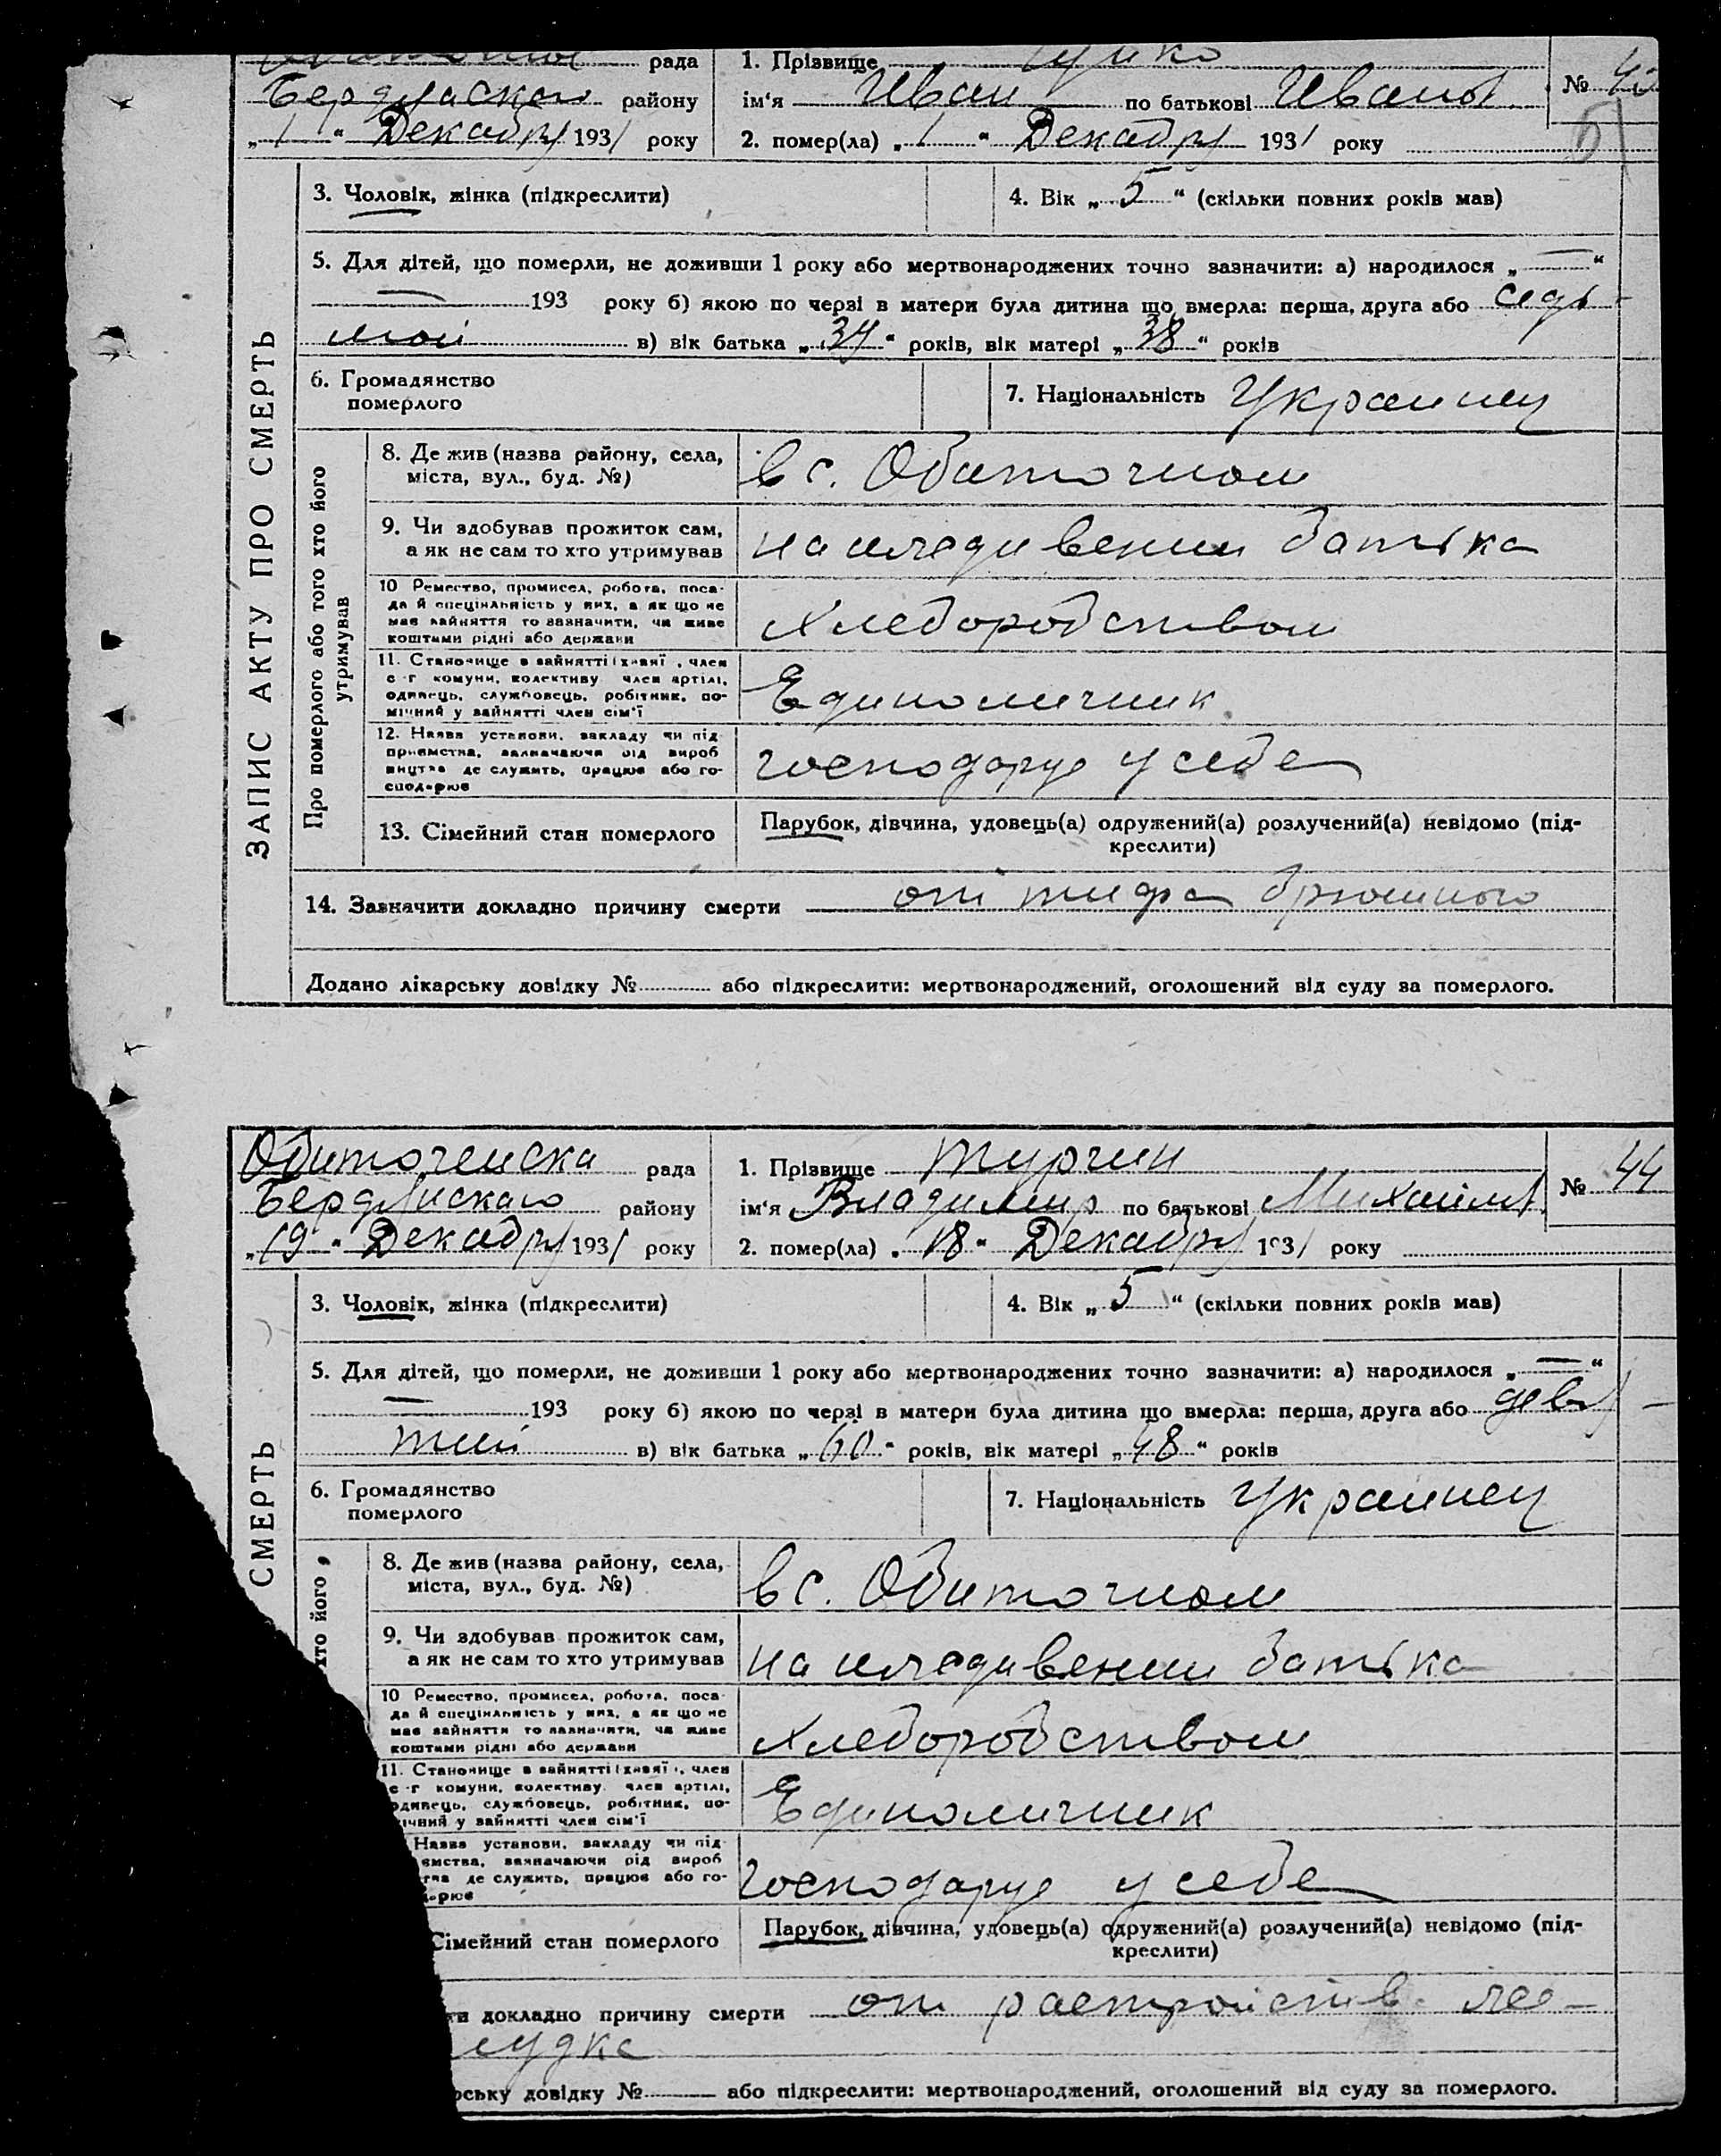 рада 1. Прізвище
Бердянского району ім'я Иван по батькові Иванов №
„ 1 " Декабря 1931 року 2. помер(ла) „ 1 " Декабря 1931 року
3. Чоловік, жінка (підкреслити) 4. Вік „ 5 " (скільки повних років мав)
5. Для дітей, що померли, не доживши 1 року або мертвонароджених точно зазначити: а) народилося „ — "
— 193 року б) якою по черзі в матери була дитина що вмерла: перша, друга або седь-
мой в) вік батька „ " років, вік матері „ 38 " років
6. Громадянство
померлого
7. Національність Украинец
ЗАПИС АКТУ ПРО СМЕРТЬ
Про померлого або того хто його
утримував
8. Де жив (назва району, села,
міста, вул., буд. №)
в с. Обиточном
9. Чи здобував прожиток сам,
а як не сам то хто утримував
на иждивении батька
10 Ремество, промисел, робота, поса-
да й спеціальність у них, а як що не
мав зайняття то зазначити, чи живе
коштами рідні або держави
Хлеборобством
11. Становище в зайнятті (хазяї, член
с-г комуни, колективу член артілі,
одинець, службовець, робітник, по-
мічний у зайнятті член сім'ї
Единоличник
12. Назва установи, закладу чи під-
приємства, зазначаючи від вироб
ництва де служить, працює або го-
сподарює
господарує у себе
13. Сімейний стан померлого
Парубок, дівчина, удовець(а) одружений(а) розлучений(а) невідомо (під-
креслити)
14. Зазначити докладно причину смерти от тифа брюшного
Додано лікарську довідку № або підкреслити: мертвонароджений, оголошений від суду за померлого.
Обиточенска рада 1. Прізвище Турчин
Бердянскаго району ім'я Владимир по батькові Михайлов № 44
„ 19 " Декабря 1931 року 2. помер(ла) „ 18 " Декабря 1931 року
3. Чоловік, жінка (підкреслити) 4. Вік „ 5 " (скільки повних років мав)
5. Для дітей, що померли, не доживши 1 року або мертвонароджених точно зазначити: а) народилося „ — "
— 193 року б) якою по черзі в матери була дитина що вмерла: перша, друга або девя-
тий в) вік батька „ 60 " років, вік матері „ 48 " років
6. Громадянство
померлого
7. Національність Украинец
СМЕРТЬ
хто його
8. Де жив (назва району, села,
міста, вул., буд. №)
в с. Обиточном
9. Чи здобував прожиток сам,
а як не сам то хто утримував
на иждивении батька
10 Ремество, промисел, робота, поса-
да й спеціальність у них, а як що не
мав зайняття то зазначити, чи живе
коштами рідні або держави
Хлеборобством
11. Становище в зайнятті (хазяї, член
с-г комуни, колективу член артілі,
одинець, службовець, робітник, по-
ічний у зайнятті член сім'ї
Единоличник
Назва установи, закладу чи під-
ємства, зазначаючи рід вироб
тва де служить, працює або го-
дарює
господарує у себе
Сімейний стан померлого
Парубок, дівчина, удовець(а) одружений(а) розлучений(а) невідомо (під-
креслити)
ти докладно причину смерти от растройств. же-
лудка
рську довідку № або підкреслити: мертвонароджений, оголошений від суду за померлого.